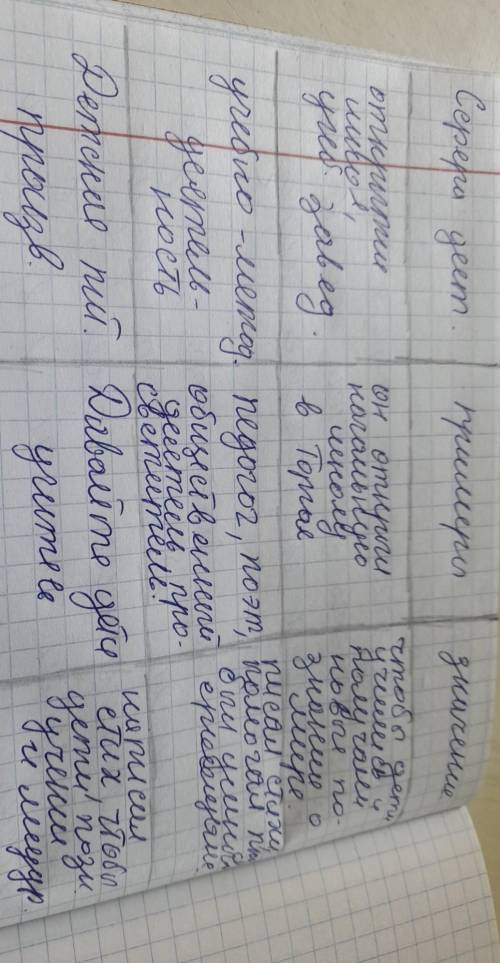 Сфера деят.
примеры
значение
открытие
школ,
учеб. завед.
он открыл
начальную
школу
в Торье
чтобы дети
учились и
получали
новые по-
знания о
мире.
учебно-метод.
деятель-
ность
педогог, поэт,
обществ енный
деятель, про-
светитель.
писал стихи,
помогал
был
Детские
произв.
Давайте дети
учиться
написал
стих, чтобы
дети
учении
и